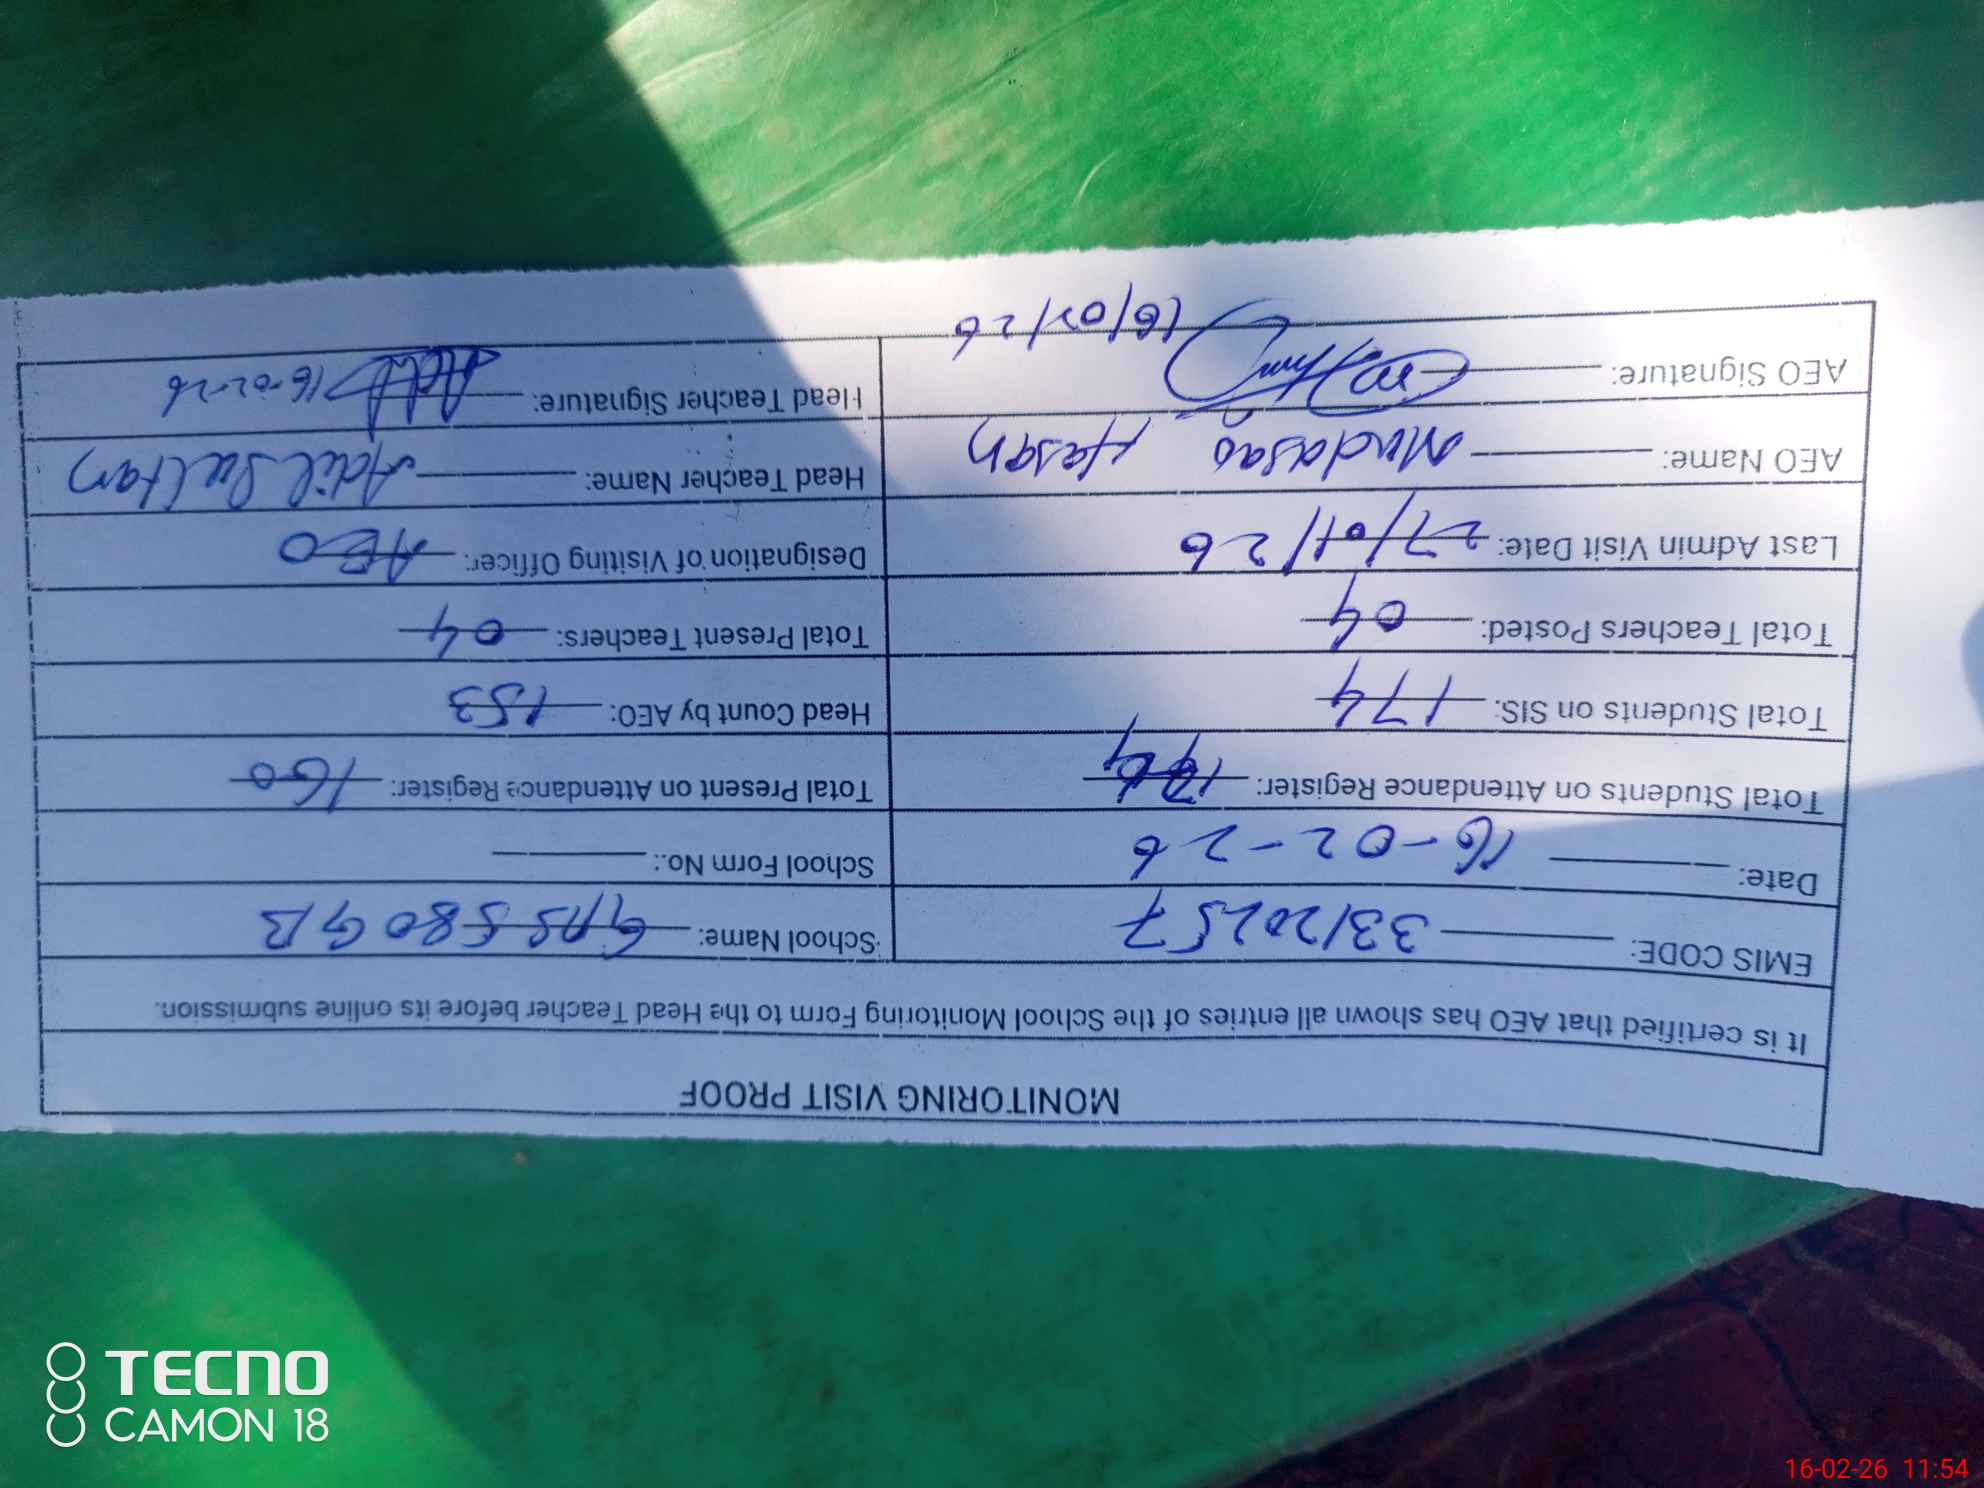 MONITORING VISIT PROOF
It is certified that AEO has shown all entries of the School Monitoring Form to the Head Teacher before its online submission.
EMIS CODE: 33120257 School Name: GPS 580 GB
Date: 16-02-26 School Form No.:
Total Students on Attendance Register: 174 Total Present on Attendance Register: 160
Total Students on SIS: 174 Head Count by AEO: 153
Total Teachers Posted: 04 Total Present Teachers: 04
Last Admin Visit Date: 27/01/26 Designation of Visiting Officer: AEO
AEO Name: Mudasar Hasan Head Teacher Name: Adil Sultan
AEO Signature: 16/02/26 Head Teacher Signature: Adil 16-02-26
TECNO
CAMON 18
16-02-26 11:54